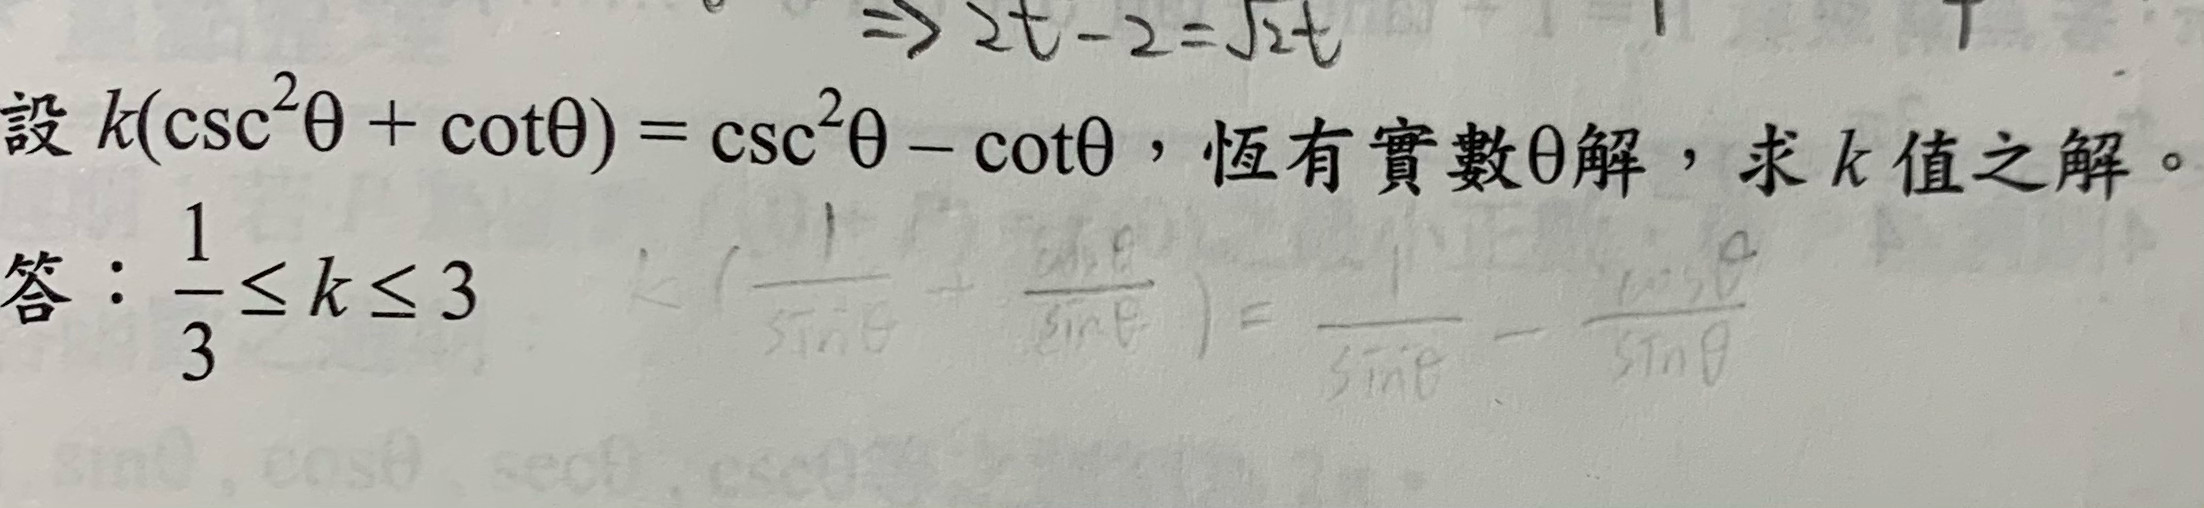 ⇒ 2t-2=√2t
設 k(csc²θ + cotθ) = csc²θ – cotθ，恆有實數θ解，求 k 值之解。
答：1/3 ≤ k ≤ 3
k(1/sinθ + cosθ/sinθ) = 1/sinθ - cosθ/sinθ
sinθ, cosθ, secθ, cscθ